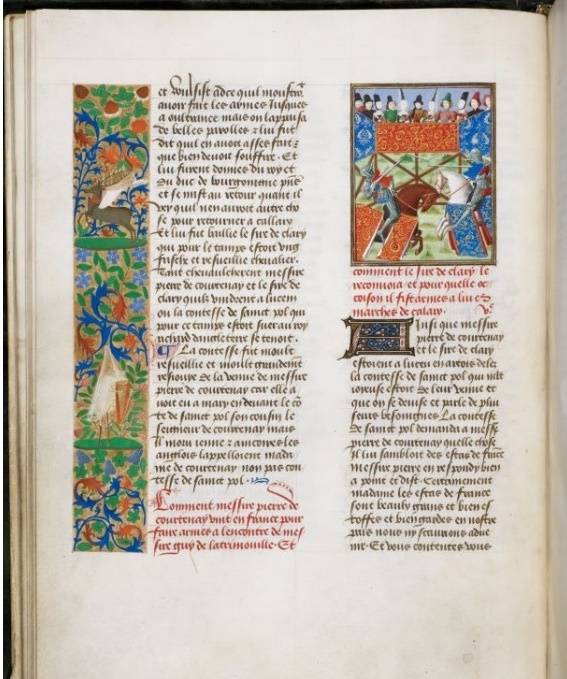 et voulsist adce quil monstra
avoir fait les armes Jusques
a oultrance mais on lappaisa
de belles parolles z lui fut
dit quil en avoit asses fait z
que bien devoit souffire. Et
lui furent donnes du roy et
Du duc de bourgoingne
et se mist au retour quant il
vey quil nen auroit autre cho
se pour retourner a callaix
Et lui fut baillie le sire de clary
qui pour le temps estoit ung
frische et resveillie chevalier.
Tant chevaulcherent messire
pierre de courtenay et le sire de
clary quilz vindrent a lucem
ou la contesse de sainct pol qui
pour ce temps estoit suer au roy
richard dangleterre se tenoit.
La contesse fut moult
resveillie et moult grandement
resjouye De la venue de messire
pierre de courtenay car elle a
voit eu a mary en devant le co
te de sainct pol son cousin le
seigneur de courtenay mais
Il morut Jenne z encores les
anglois lappelloient mada
me de courtenay non pas con
tesse de sainct pol.
Comment messire pierre de
courtenay vint en france pour
faire armes a lencontre de mes
sire guy de latrimouille. Et
comment le sire de clary le
reconvoia et pour quelle oc
coison il fist armes a lui es
marches de calaix.
Ainsi que messire
pierre de courtenay
et le sire de clary
estoient a lucen en artois delez
la contesse de sainct pol qui moult
joieuse estoit De leur venue et
que on se devise et parle de plu
seurs besoingnes La contesse
De sainct pol demanda a messire
pierre de courtenay quelle chose
Il lui sembloit des estas de france
Messire pierre en respondy bien
a point et dist. Certainement
madame les estas de france
sont beaulx grans et bien es
toffes et bien gardes en nostre
pais nous ny scaurions adve
nir. Et vous contentes vous